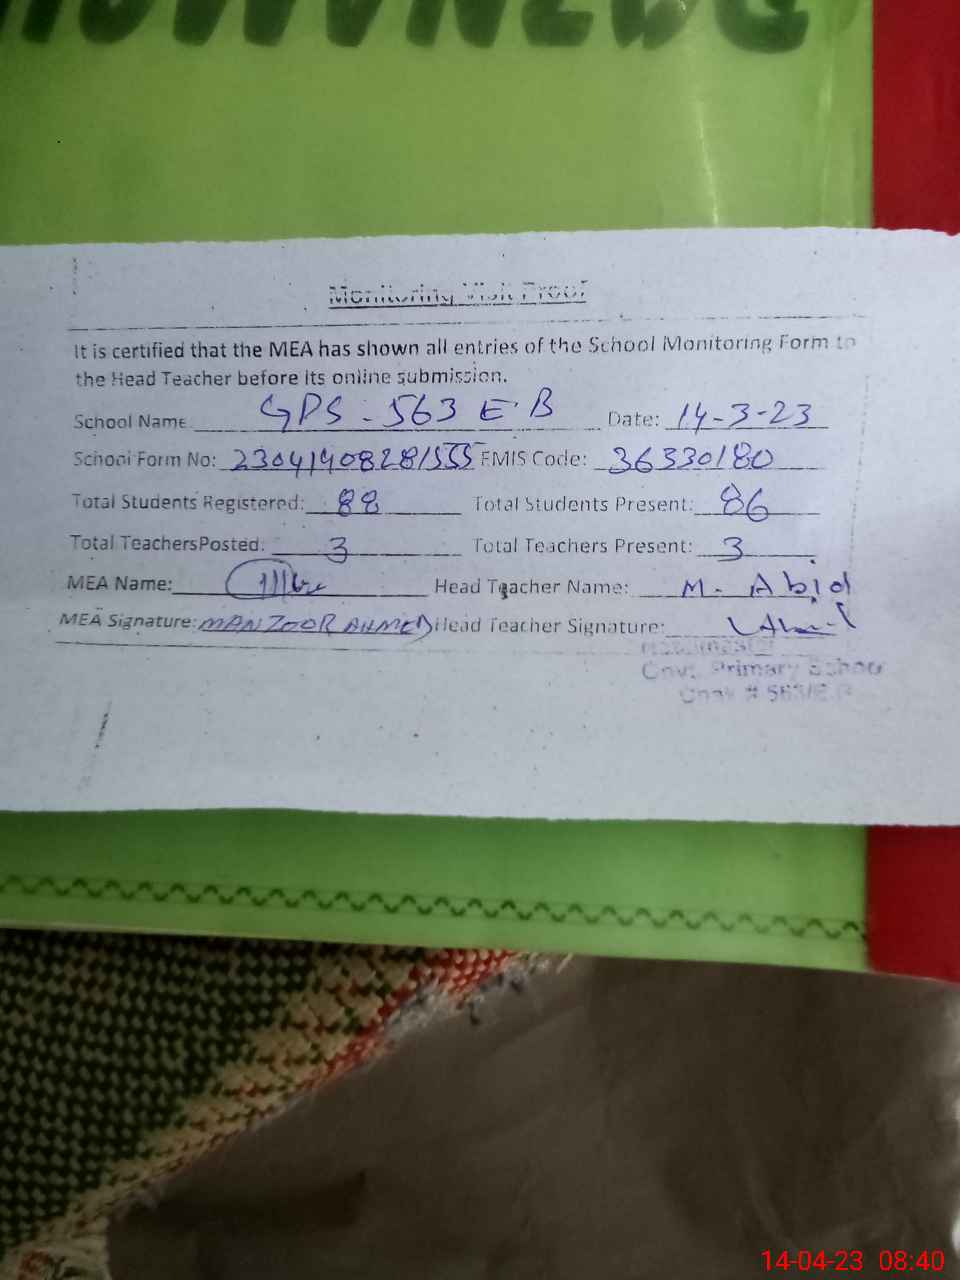 Monitoring Visit Proof
It is certified that the MEA has shown all entries of the School Monitoring Form to
the Head Teacher before its online submission.
School Name GPS - 563 E.B Date: 14-3-23
School Form No: 23041408281555 EMIS Code: 36330180
Total Students Registered: 88 Total Students Present: 86
Total TeachersPosted: 3 Total Teachers Present: 3
MEA Name: Head Teacher Name: M. Abid
MEA Signature: MANZOOR AHMED Head Teacher Signature:
Headmaster
Govt. Primary School
Chak # 563/E.B
14-04-23 08:40